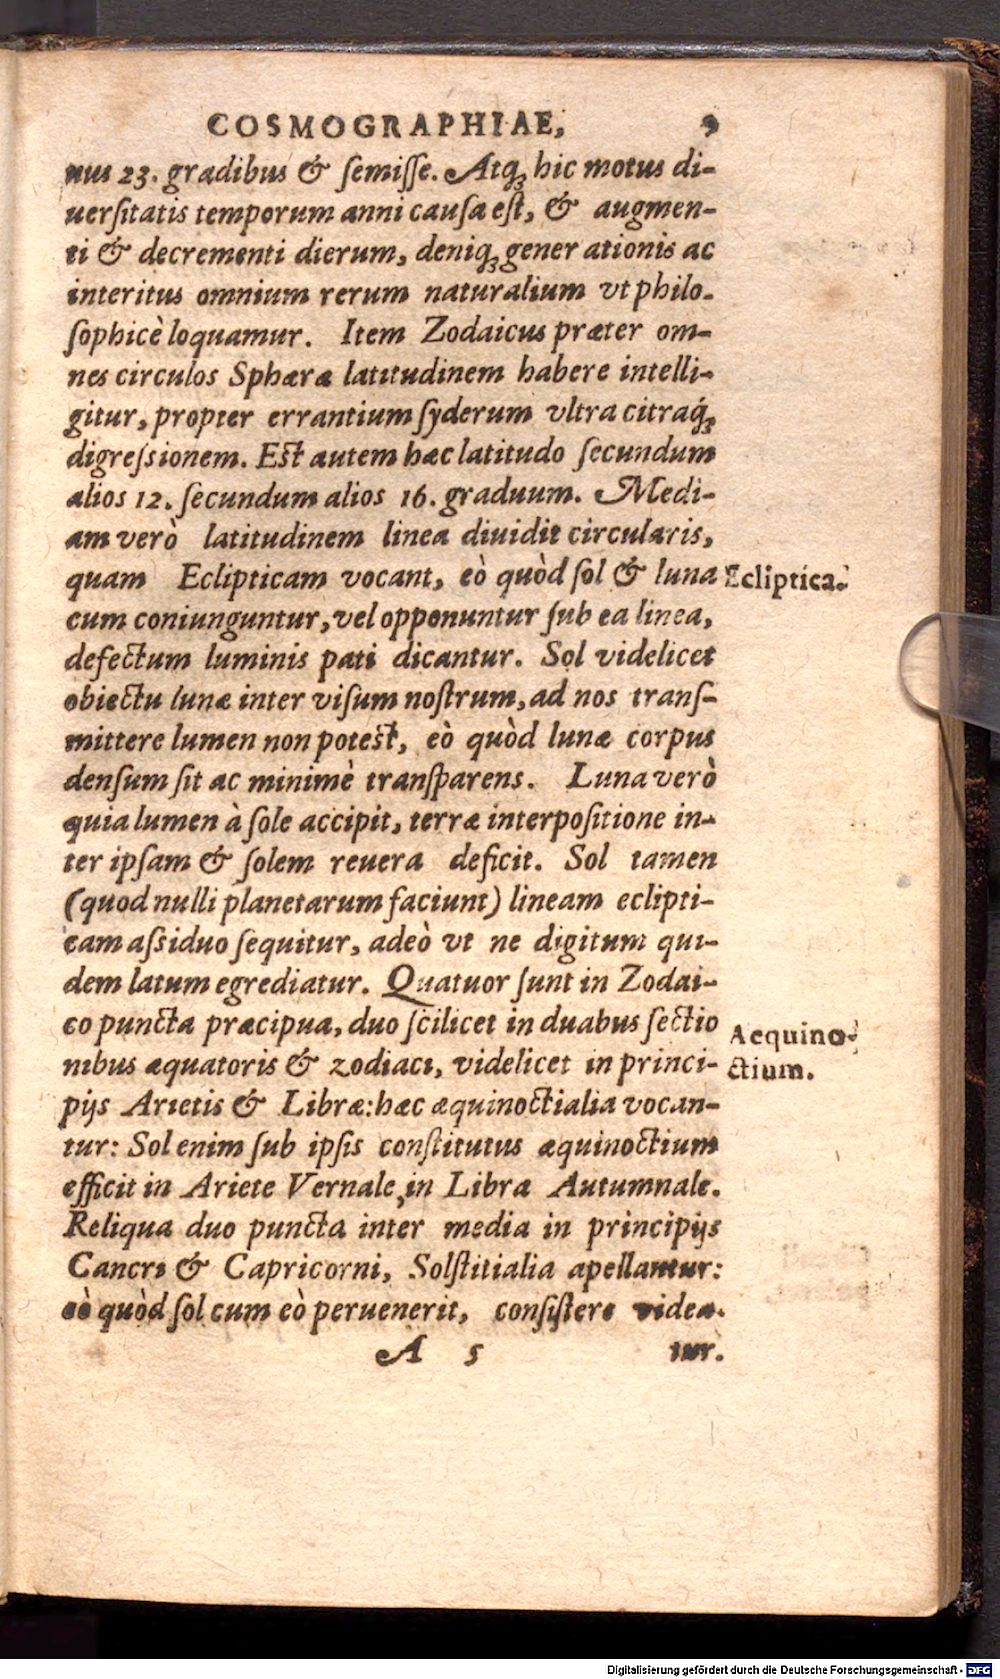 COSMOGRAPHIAE, 9
nus 23. gradibus & ſemiſſe. Atq; hic motus di-
uerſitatis temporum anni cauſa eſt, & augmen-
ti & decrementi dierum, deniq; gener ationis ac
interitus omnium rerum naturalium vt philo-
ſophicè loquamur. Item Zodaicus præter om-
nes circulos Sphæræ latitudinem habere intelli-
gitur, propter errantium ſyderum vltra citraq́;
digreſsionem. Eſt autem hæc latitudo ſecundum
alios 12. ſecundum alios 16. graduum. Medi-
am verò latitudinem linea diuidit circularis,
quam Eclipticam vocant, eò quòd ſol & luna
Ecliptica.
cum coniunguntur, vel opponuntur ſub ea linea,
defectum luminis pati dicantur. Sol videlicet
obiectu lunæ inter viſum noſtrum, ad nos tranſ-
mittere lumen non poteſt, eò quòd lunæ corpus
denſum ſit ac minimè tranſparens. Luna verò
quia lumen à ſole accipit, terræ interpoſitione in-
ter ipſam & ſolem reuera deficit. Sol tamen
(quod nulli planetarum faciunt) lineam eclipti-
cam aſsiduo ſequitur, adeò vt ne digitum qui-
dem latum egrediatur. Quatuor ſunt in Zodai-
co puncta præcipua, duo ſcilicet in duabus ſectio
Aequino-
nibus æquatoris & zodiaci, videlicet in princi-
ctium.
pijs Arietis & Libræ: hæc æquinoctialia vocan-
tur: Sol enim ſub ipſis conſtitutus æquinoctium
efficit in Ariete Vernale, in Libra Autumnale.
Reliqua duo puncta inter media in principijs
Cancri & Capricorni, Solſtitialia apellantur:
eò quòd ſol cum eò peruenerit, conſiſtere videa-
A 5 tur.
Digitalisierung gefördert durch die Deutsche Forschungsgemeinschaft - DFG